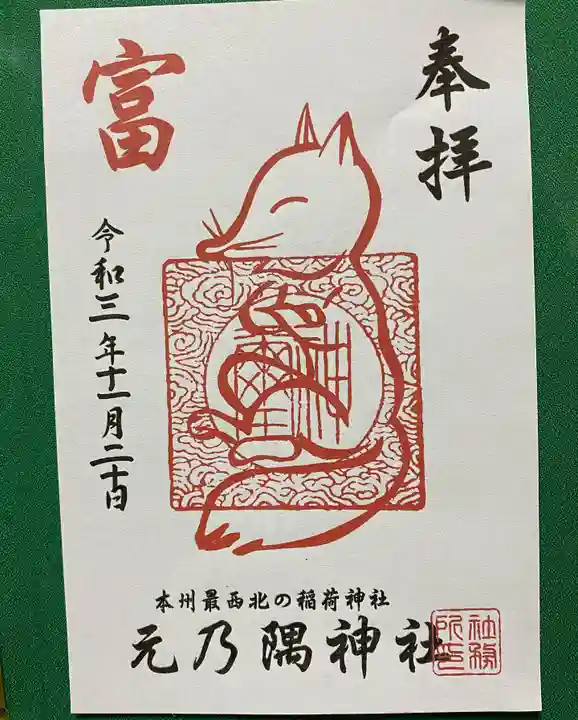 奉拝
富
令和三年十一月二十日
本州最西北の稲荷神社
元乃隅神社
社務所印